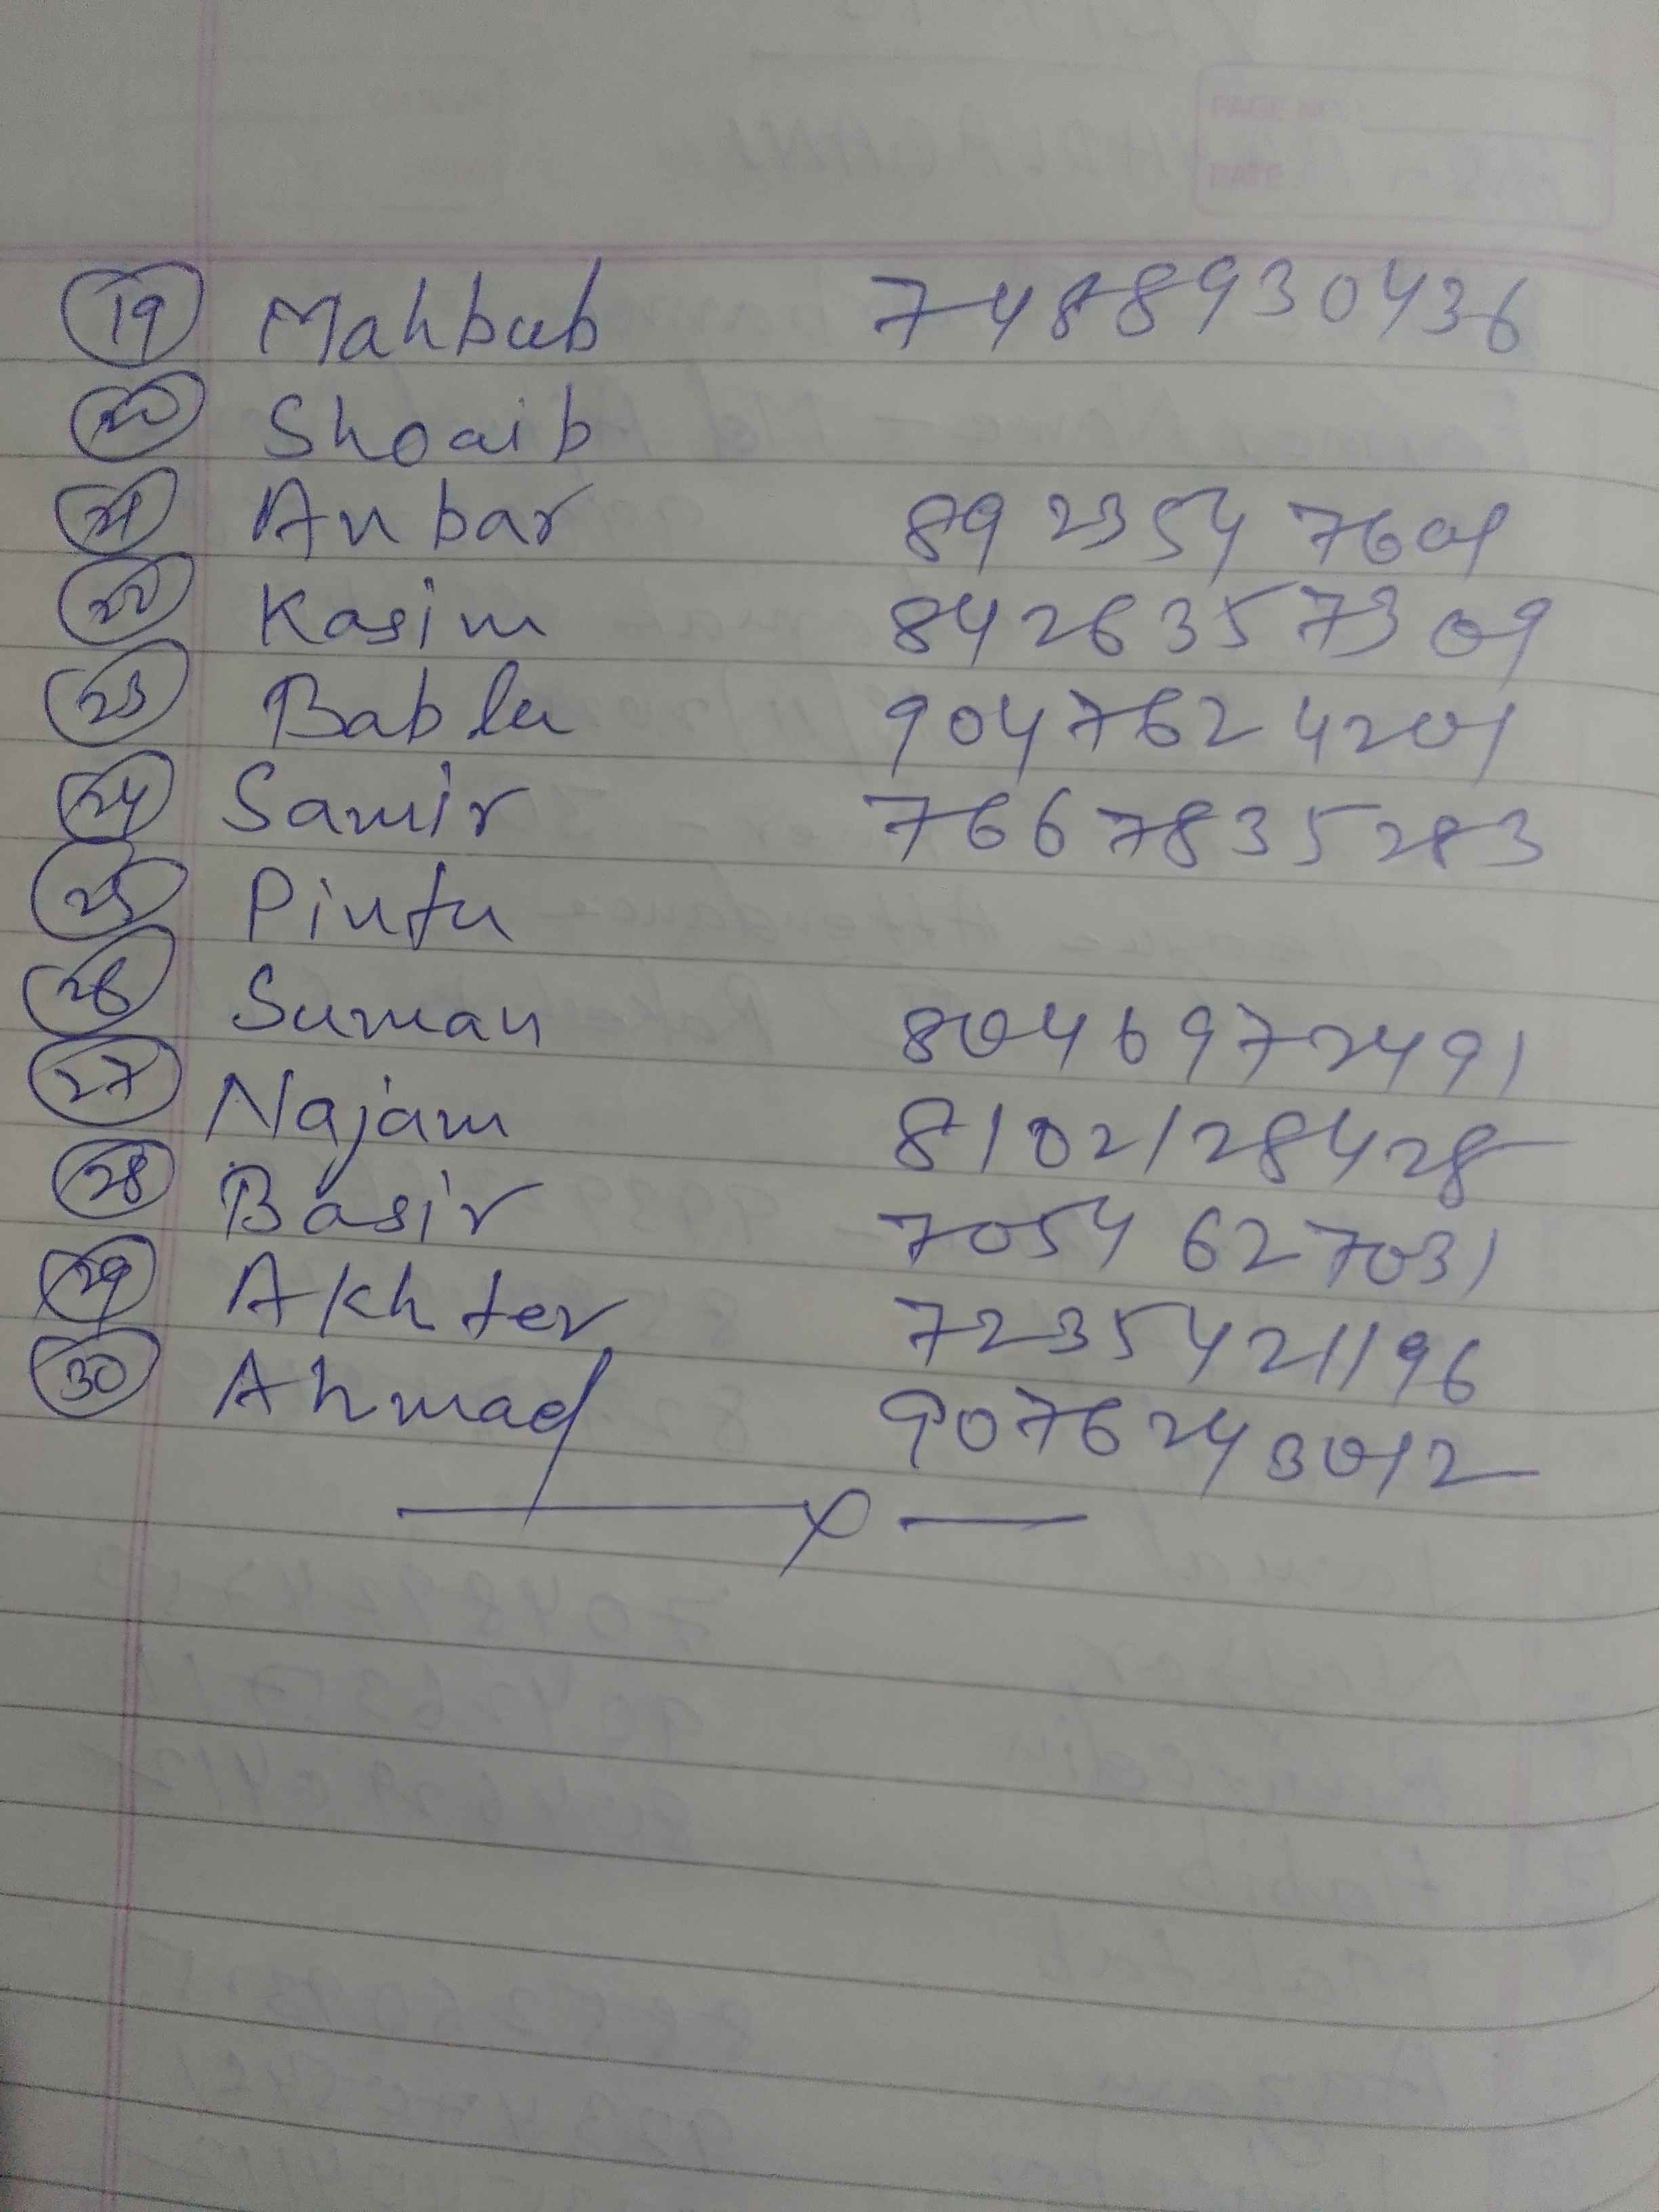 19 Mahbub 7488930436
20 Shoaib
21 Anbar 8923547601
22 Kasim 8426357309
23 Bablu 9047624201
24 Samir 7667835283
25 Pintu
26 Suman 8046972491
27 Najam 8102128428
28 Basir 7054627031
29 Akhter 7235421196
30 Ahmad 9076243012